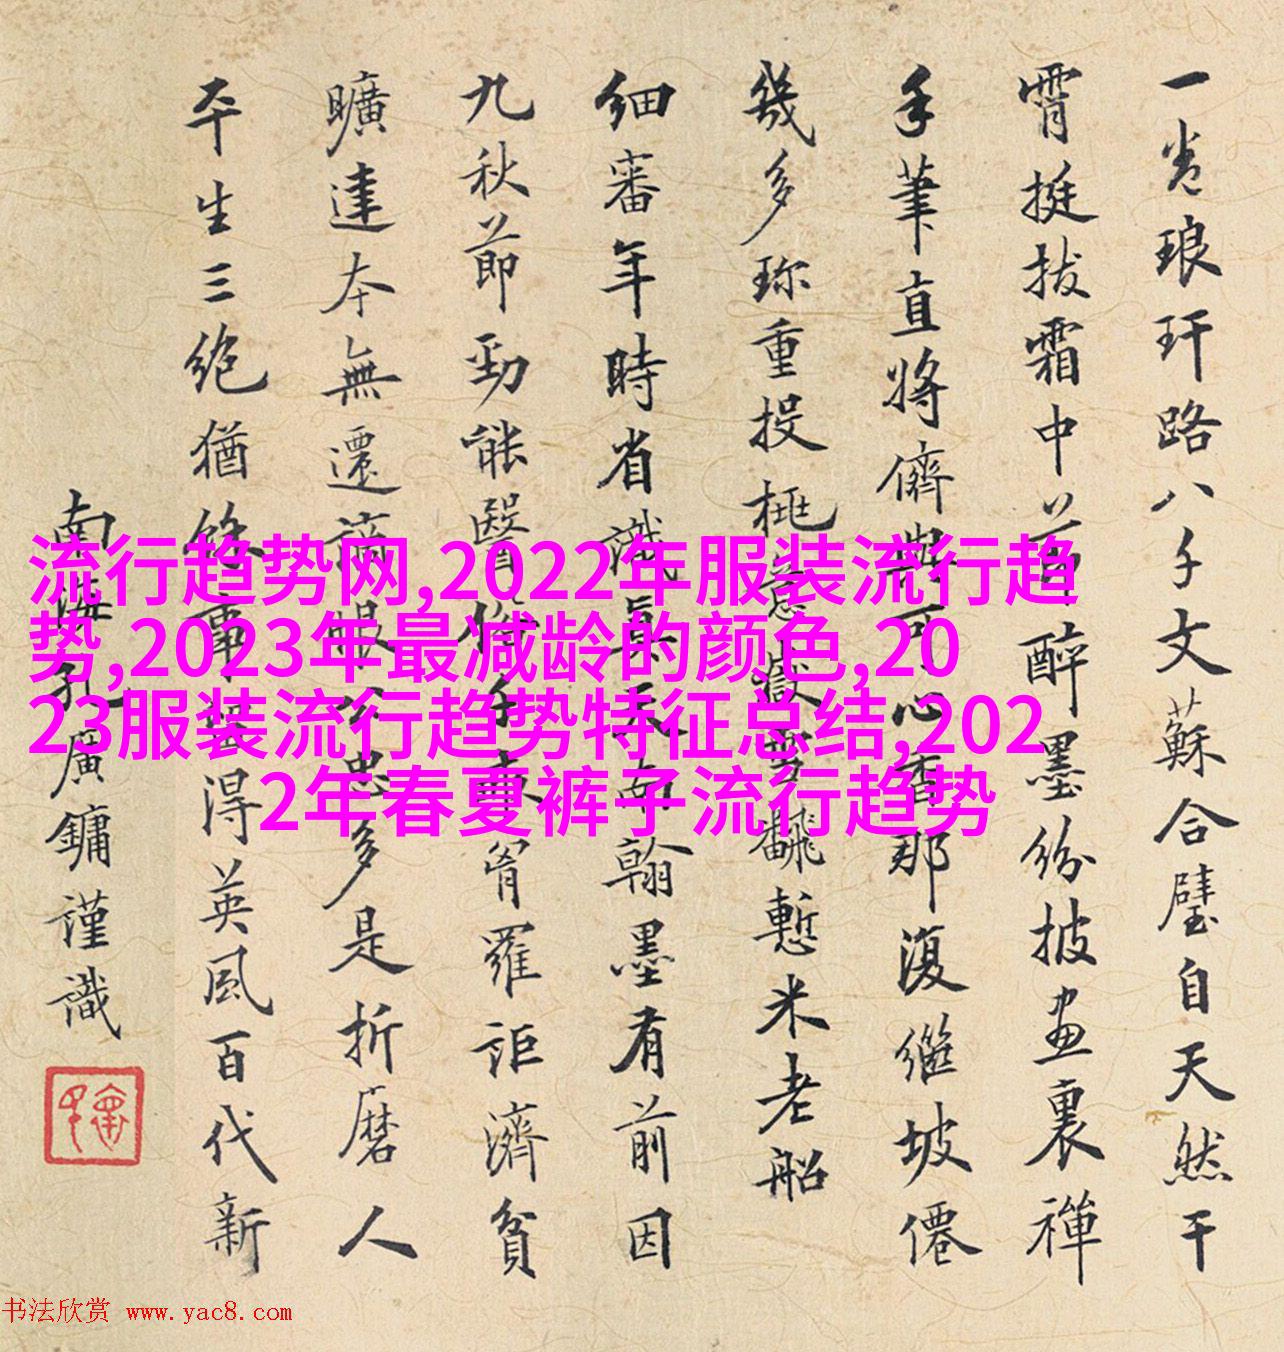 一卷琅玕路八千文蘇合璧自天然干
霄挺拔霜中節醉墨紛披畫裏禪
手筆直將儕與可心香那復繼坡僊
幾多珍重投桃意嶽雪飜慙米老船
細審年時省識真天南翰墨有前因
九秋節勁能醫俗千胷羅詎濟貧
曠達本無遷謫恨公忠多是折磨人
平生三絕猶餘事贏得英風百代新
南海孔廣鏞謹識
流行趋势网,2022年服装流行趋
势,2023年最减龄的颜色,20
23服装流行趋势特征总结,202
2年春夏裤子流行趋势
书法欣赏 www.yac8.com